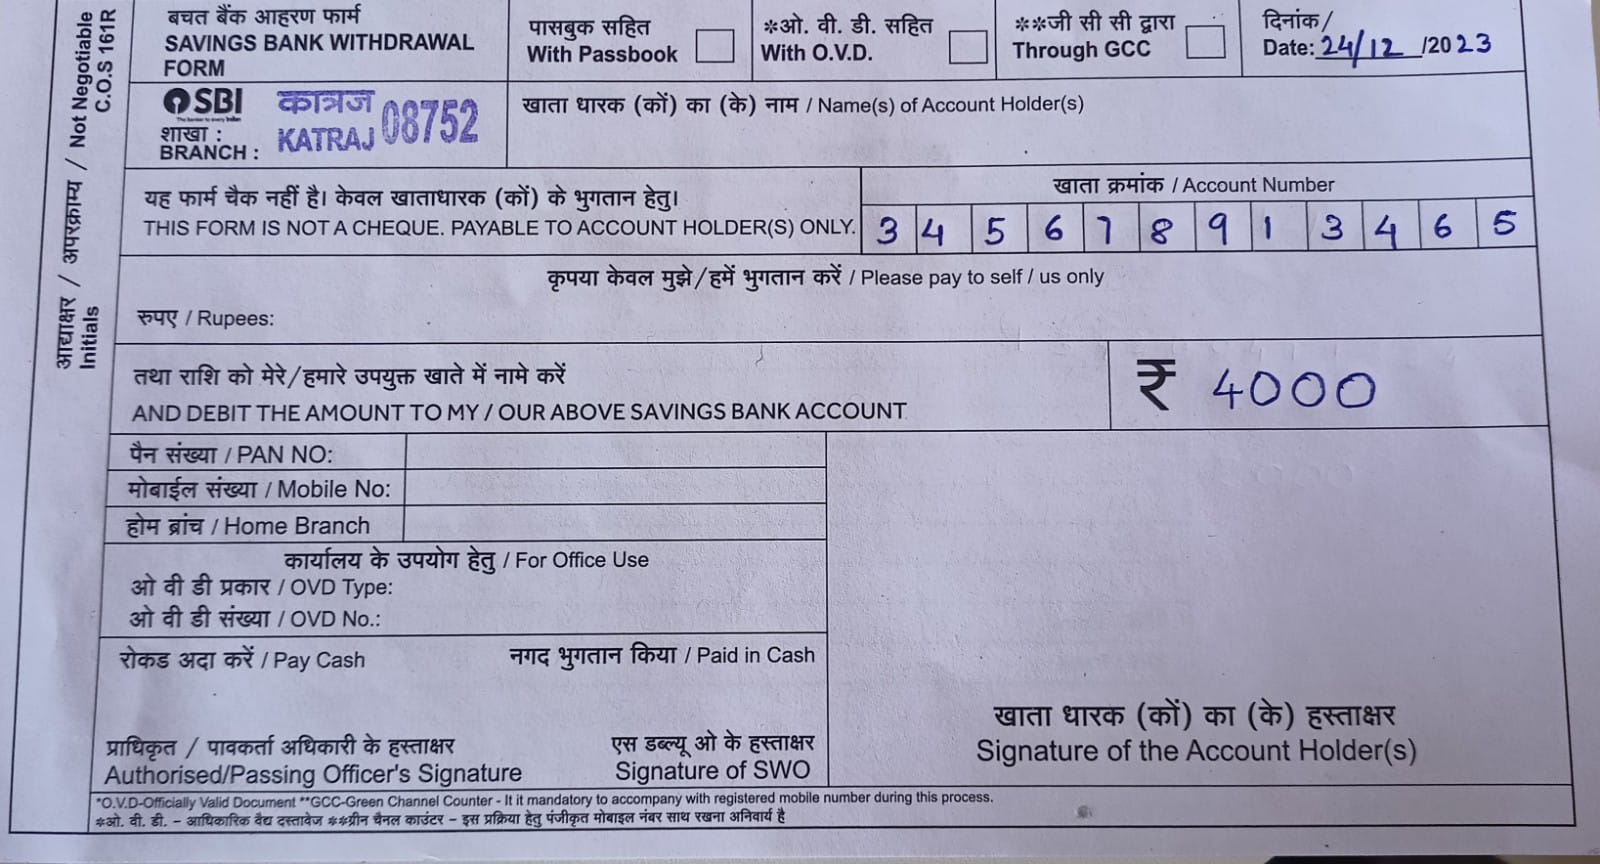 आद्याक्षर / अपरक्राम्य / Not Negotiable
Initials C.O.S 161R
बचत बैंक आहरण फार्म
SAVINGS BANK WITHDRAWAL
FORM
पासबुक सहित
With Passbook
*ओ. वी. डी. सहित
With O.V.D.
**जी सी सी द्वारा
Through GCC
दिनांक/
Date: 24/12/2023
SBI
The banker to every Indian
शाखा :
BRANCH :
कात्रज
KATRAJ 08752
खाता धारक (कों) का (के) नाम / Name(s) of Account Holder(s)
यह फार्म चैक नहीं है। केवल खाताधारक (कों) के भुगतान हेतु।
THIS FORM IS NOT A CHEQUE. PAYABLE TO ACCOUNT HOLDER(S) ONLY.
खाता क्रमांक / Account Number
3 4 5 6 7 8 9 1 3 4 6 5
कृपया केवल मुझे/हमें भुगतान करें / Please pay to self / us only
रुपए / Rupees:
तथा राशि को मेरे/हमारे उपयुक्त खाते में नामे करें
AND DEBIT THE AMOUNT TO MY / OUR ABOVE SAVINGS BANK ACCOUNT
₹ 4000
पैन संख्या / PAN NO:
मोबाईल संख्या / Mobile No:
होम ब्रांच / Home Branch
कार्यालय के उपयोग हेतु / For Office Use
ओ वी डी प्रकार / OVD Type:
ओ वी डी संख्या / OVD No.:
रोकड अदा करें / Pay Cash
नगद भुगतान किया / Paid in Cash
प्राधिकृत / पावकर्ता अधिकारी के हस्ताक्षर
Authorised/Passing Officer's Signature
एस डब्ल्यू ओ के हस्ताक्षर
Signature of SWO
खाता धारक (कों) का (के) हस्ताक्षर
Signature of the Account Holder(s)
*O.V.D-Officially Valid Document **GCC-Green Channel Counter - It it mandatory to accompany with registered mobile number during this process.
*ओ. वी. डी. – आधिकारिक वैद्य दस्तावेज **ग्रीन चैनल काउंटर – इस प्रक्रिया हेतु पंजीकृत मोबाइल नंबर साथ रखना अनिवार्य है